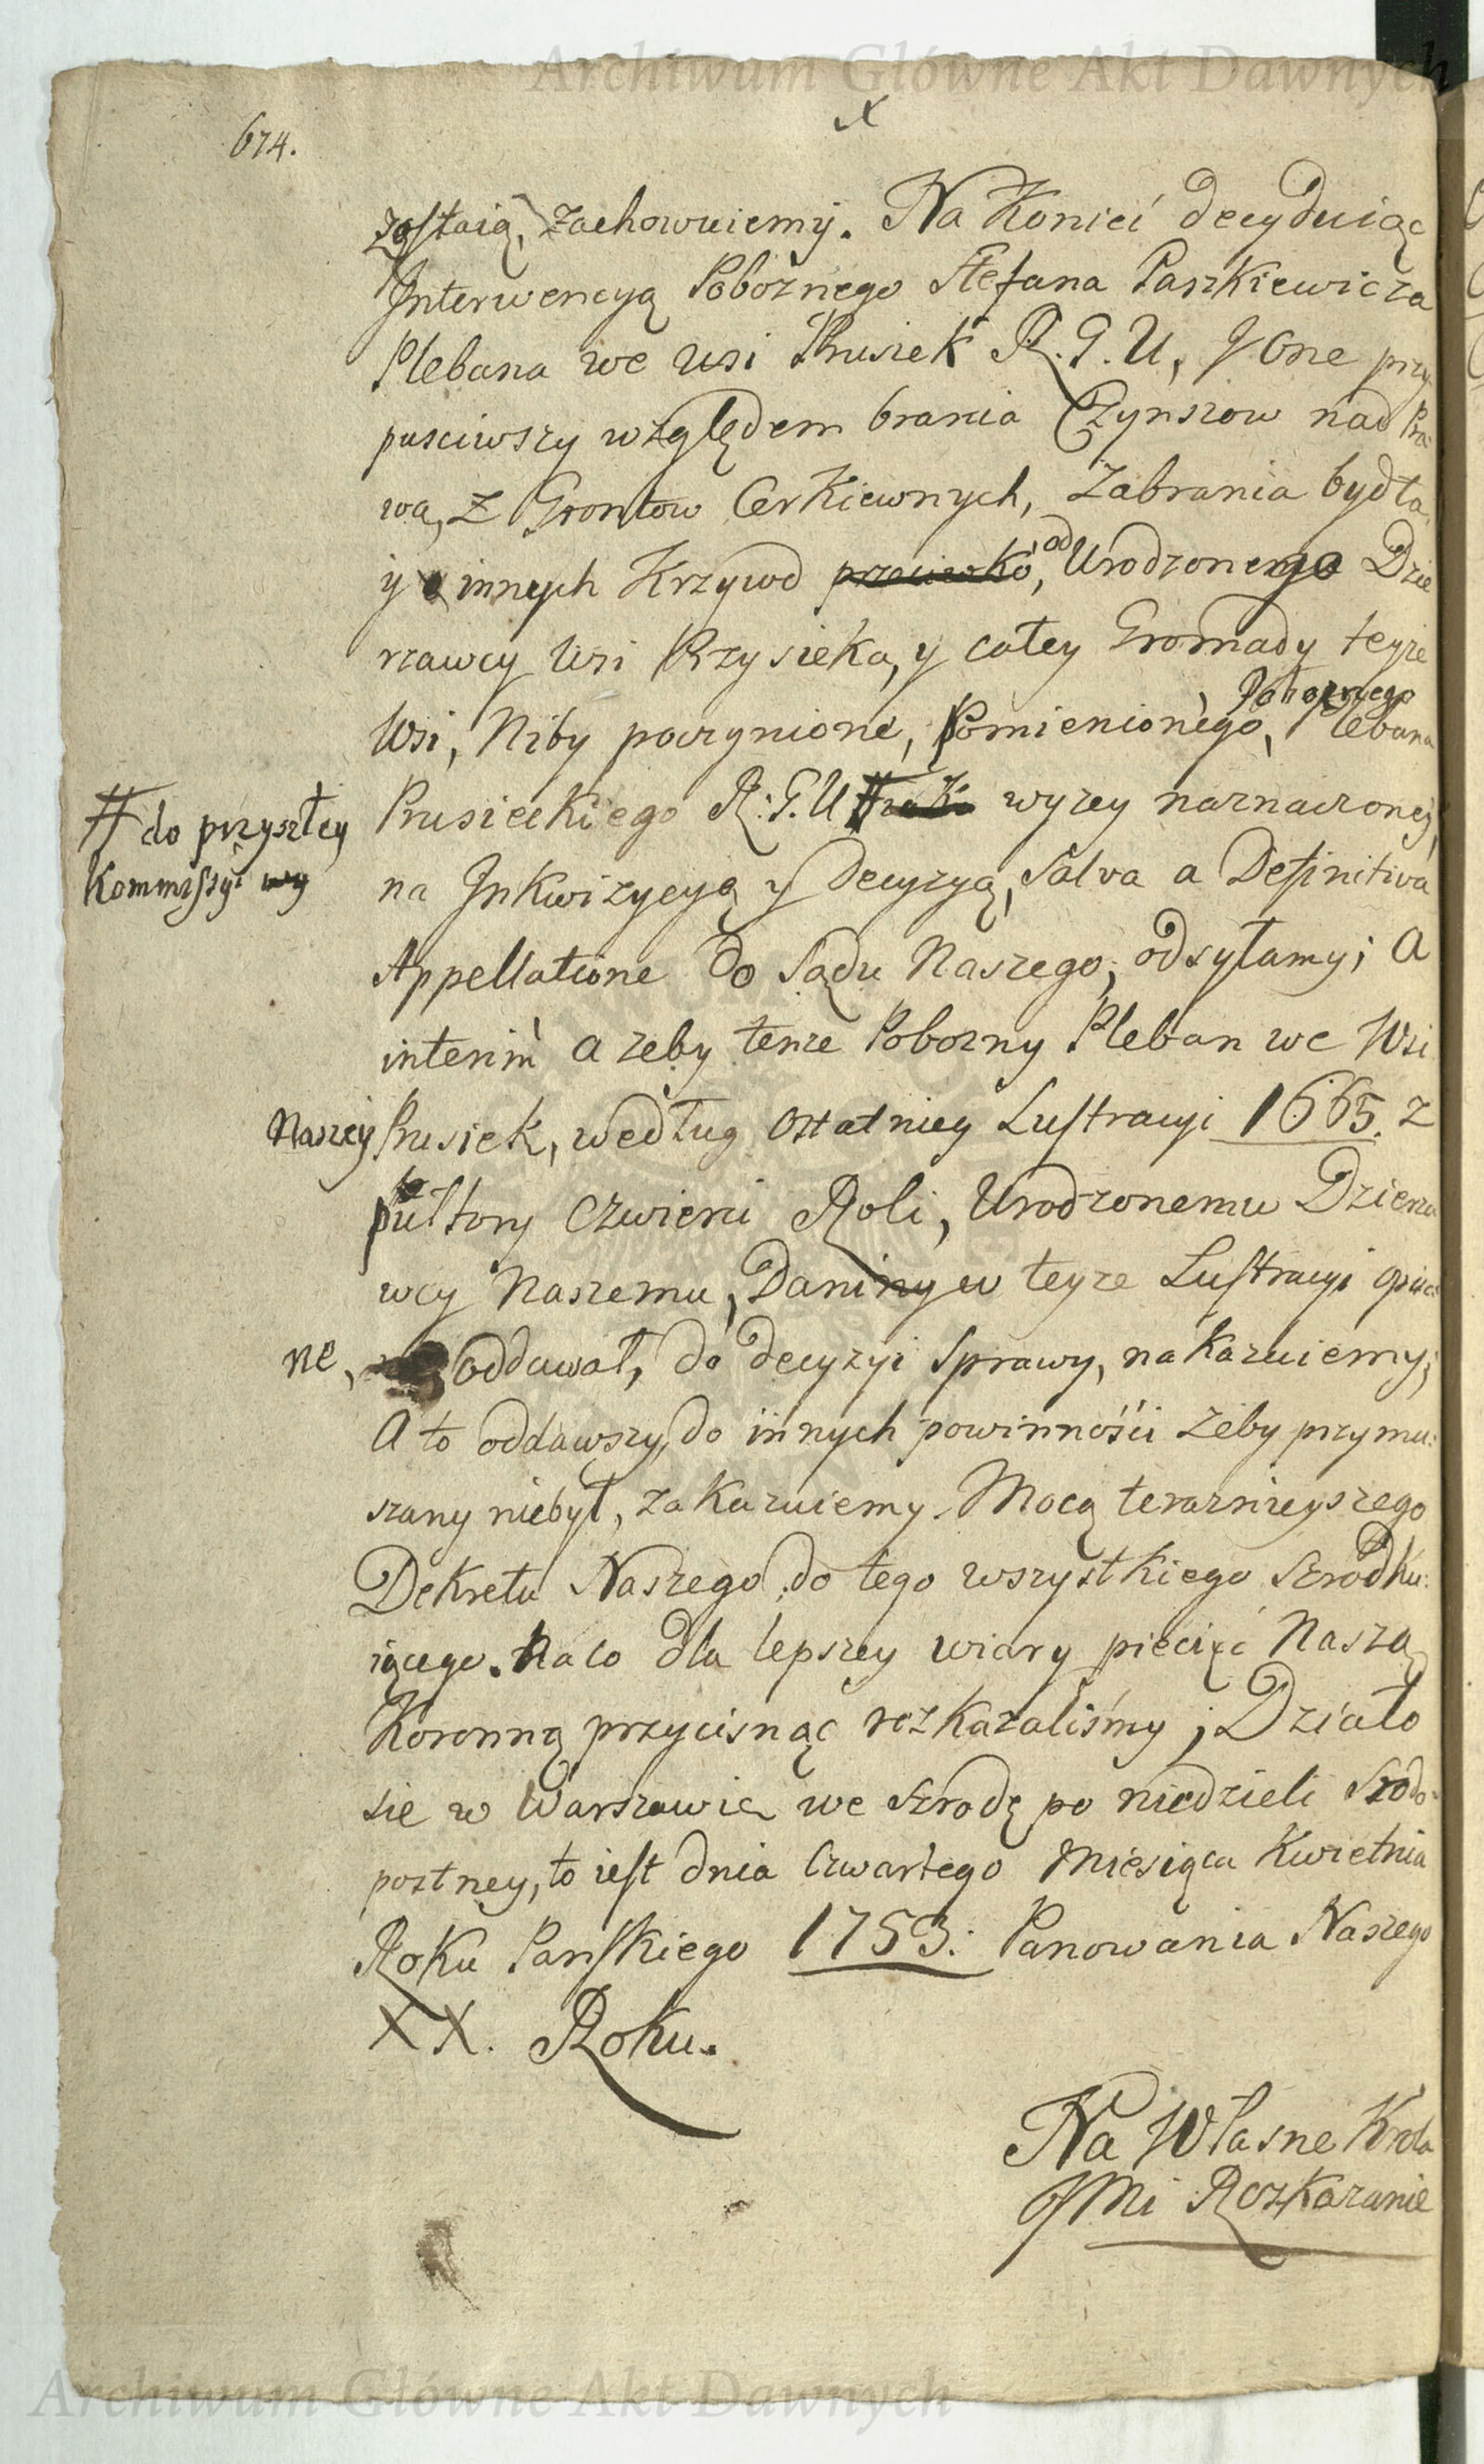 Archiwum Główne Akt Dawnych
674.
X
zostaią, zachowuiemy. Na Konieć decyduiąc
Interwencyą Pobożnego Stefana Paszkiewicza
Plebana we wsi Prusiek R.G.U, y One przy
pusciwszy względem brania Czynszow nad Pra
wa, z Grontow Cerkiewnych, zabrania bydła,
y innych Krzywd przeciwko, od Urodzonego Dzie
rzawcy Wsi Przysieka, y całey Gromady teyże
Wsi, Niby poczynione, Pomienionego, Pobożnego Plebana
# do przyszłey
Kommissyi wy
Prusieckiego R:G.U # wyzey naznaczoney,
na Inkwizycyą y Decyzyą, Salva a Definitiva
Appellatione do Sądu Naszego, odsyłamy; A
interim a zeby tenze Pobozny Pleban we Wsi
Naszey Prusiek, według Ostatniey Lustracyi 1665. z
pułtory Czwierci Roli, Urodzonemu Dzierza
wcy Naszemu, Daniny w teyze Lustracyi opisa
ne, oddawał, do decyzyi Sprawy, nakazuiemy;
A to oddawszy, do innych powinnośći żeby przymu:
szany niebył, zakazuiemy. Mocą terazniejszego
Dekretu Naszego do tego wszystkiego Szrodku:
iącego. Na co dla lepszey wiary pieczęć Naszą
Koronną przycisnąc rozkazaliśmy; Działo
sie w Warszawie we Szrodę po niedzieli Szrodo-
postney, to iest dnia Czwartego Miesiąca Kwietnia
Roku Panskiego 1753: Panowania Naszego
XX. Roku.
Na Własne Krola
JMci Rozkazanie
Archiwum Główne Akt Dawnych